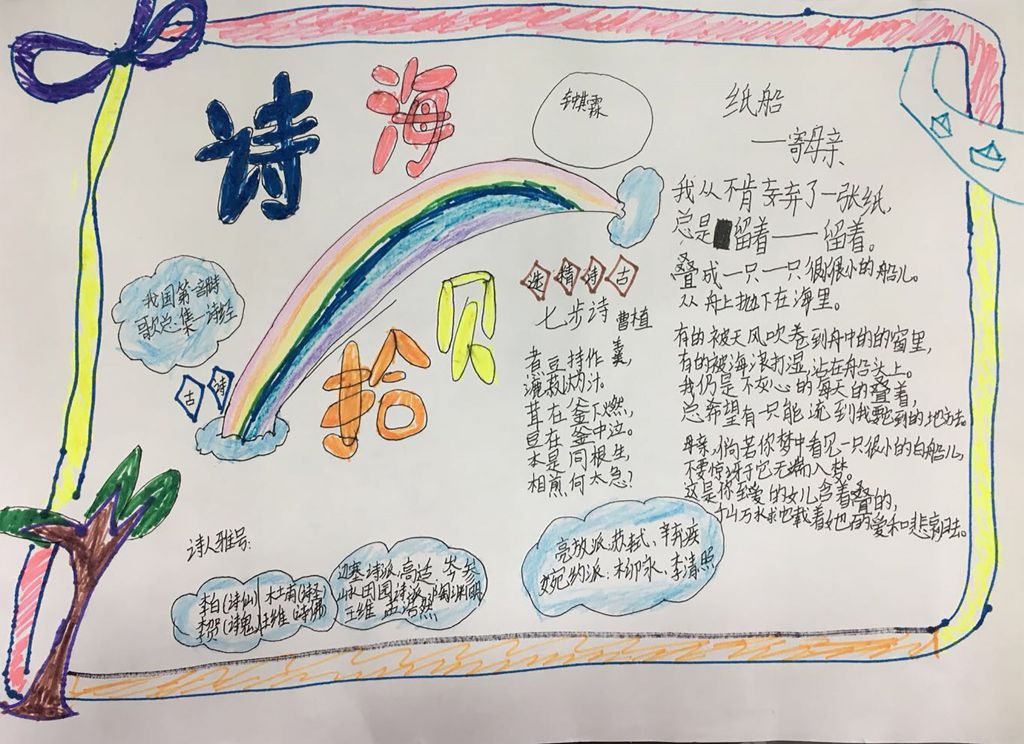 诗海
拾贝
我国第一部诗
歌总集 诗经
古诗
选精诗古
七步诗 曹植
煮豆持作羹,
漉菽以为汁。
萁在釜下燃,
豆在釜中泣。
本是同根生,
相煎何太急?
纸船
——寄母亲
我从不肯弃弃了一张纸,
总是留着——留着。
叠成一只一只很很小的船儿。
从舟上抛下在海里。
有的被天风吹卷到舟中的的窗里,
有的被海浪打湿,沾在船头上。
我仍是不灰心的每天的叠着,
总希望有一只能流到我要它到的地方去。
母亲,倘若你梦中看见一只很小的白船儿,
不要惊讶于它无端入梦。
这是你至爱的女儿含着叠的,
万水 载着她的爱和悲哀归去。
诗人雅号:
李白(诗仙) 杜甫(诗圣)
李贺(诗鬼) 王维 诗佛
边塞诗派:高适 岑参
山水田园诗派 陶渊明
王维 孟浩然
豪放派:苏轼、辛弃疾
婉约派:柳永、李清照